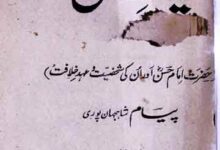 (حضرت امام حسنؓ اور ان کی شخصیت و عہد خلافت)
پیام شاہجہاں پوری